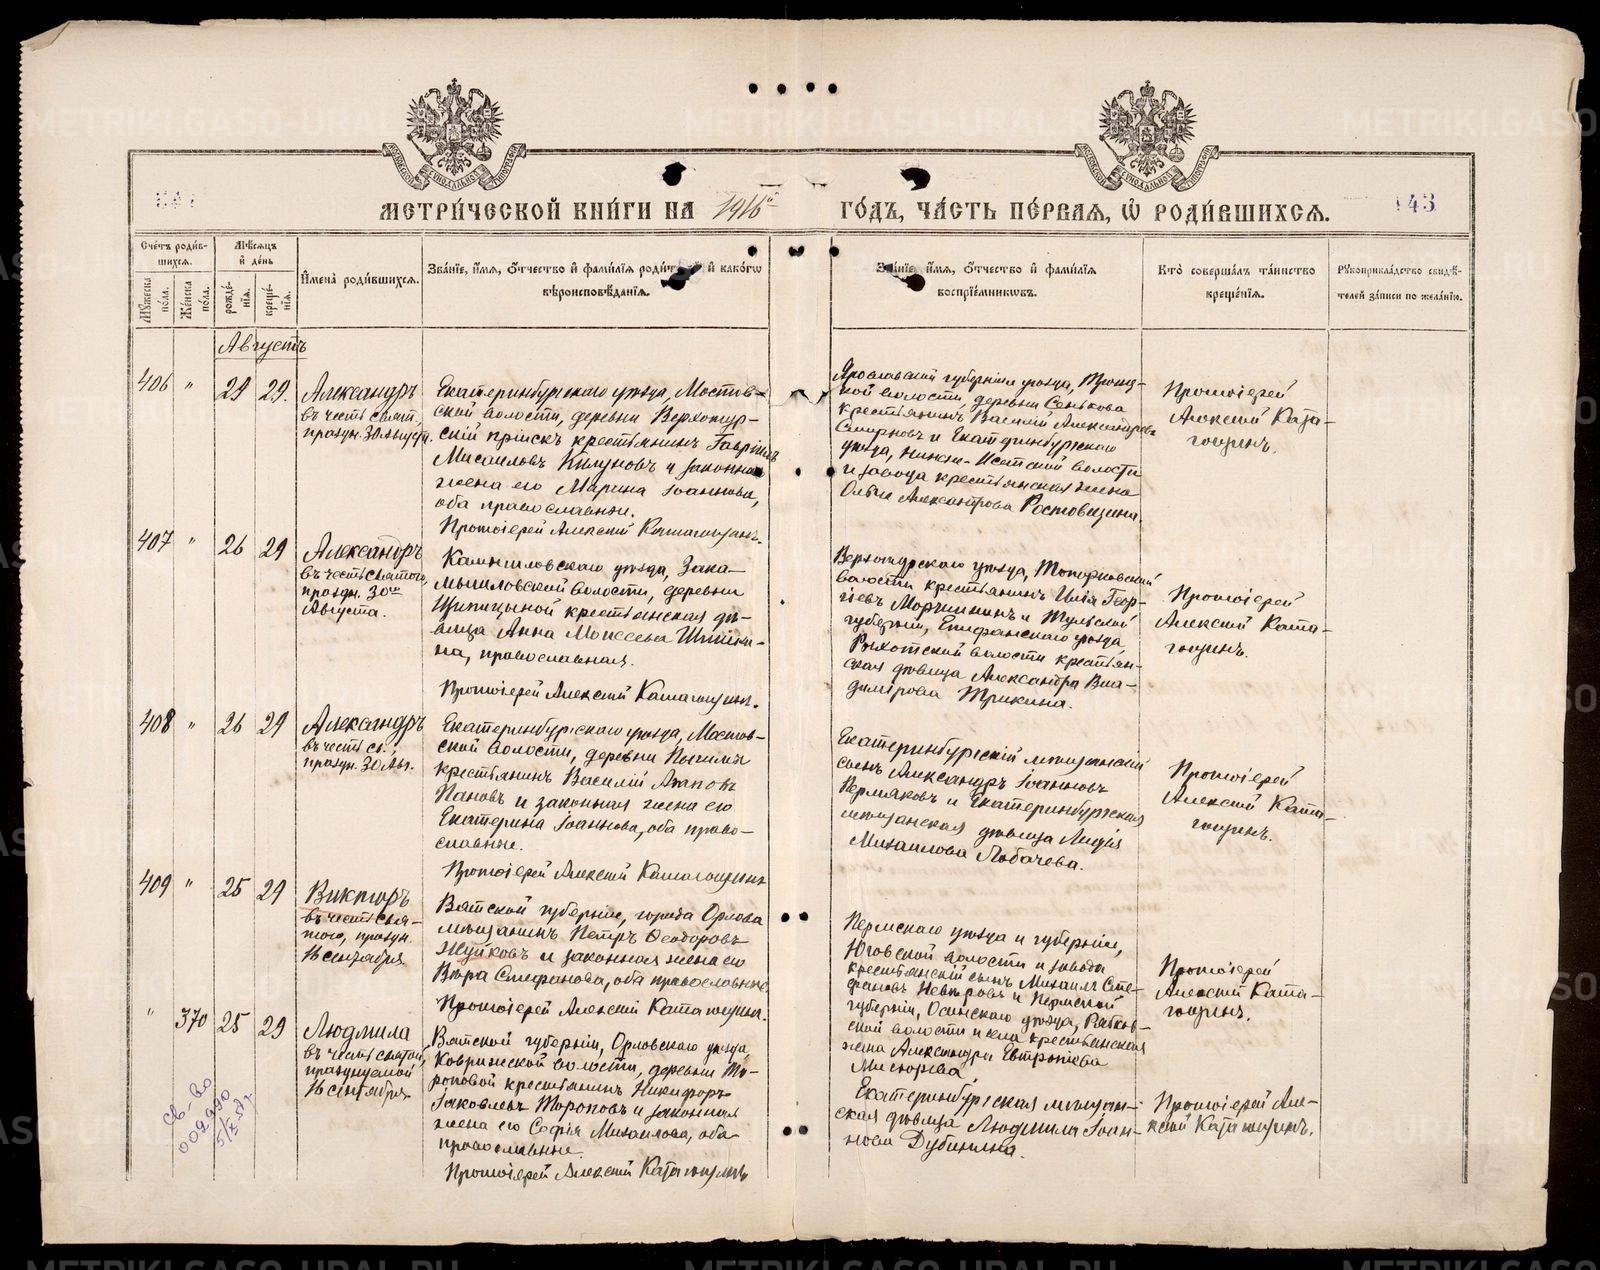 МЕТРИ́ЧЕСКОЙ КНИ́ГИ НА 1916й ГО́ДЪ, ЧА́СТЬ ПЕ́РВАѦ, Ѡ РОДИ́ВШИХСѦ.
143
Сче́тъ роди́в-
шихсѧ.
Мѹ́жеска по́ла.
Же́нска по́ла.
Мѣ́сѧцъ
и҆ де́нь
рожде́-
нїѧ.
креще́-
нїѧ.
И҆мена̀ роди́вшихсѧ.
Зва́нїе, и҆́мѧ, ѻ҆́тчество и҆ фами́лїѧ роди́телей и҆ како́гѡ
вѣроисповѣ́данїѧ.
Зва́нїе, и҆́мѧ, ѻ҆́тчество и҆ фами́лїѧ
воспрїе́мникѡвъ.
Кто̀ соверша́лъ та́инство
креще́нїѧ.
Рѹкоприкла́дство свидѣ́-
телей за́писи по жела́нїю.
Августъ
406 " 29 29.
Александръ
въ честь свят.
праздн. 30 Августа.
Екатеринбургскаго уѣзда, Мостов-
ской волости, деревни Верхотур-
скій пріискъ крестьянинъ Гавріилъ
Мисаиловъ и законная
жена его Марина Іоаннова,
оба православные.
Протоіерей Алексій Катагощинъ.
Ярославской губерніи уѣзда, Троиц-
кой волости, деревни Сенькова
крестьянинъ Василій Александровъ
Смирновъ и Екатеринбургскаго
уѣзда, Нижне-Исетской волости
и завода крестьянская жена
Ольга Александрова Ростовщина.
Протоіерей
Алексій Ката-
гощинъ.
407 " 26 29
Александръ
въ честь святого,
праздн. 30го
Августа.
Камышловскаго уѣзда, Зака-
мышловской волости, деревни
Щипицыной крестьянская дѣ-
вица Анна Моисеева Шипицы-
на, православная.
Протоіерей Алексій Катагощинъ.
Верхотурскаго уѣзда, Топорковской
волости крестьянинъ Илія Геор-
гіевъ Морчинкинъ и Тульской
губерніи, Епифанскаго уѣзда
волости крестьян-
ская дѣвица Александра Вла-
димірова Трикина.
Протоіерей
Алексій Ката-
гощинъ.
408 " 26 29
Александръ
въ честь св.
праздн. 30 Авг.
Екатеринбургскаго уѣзда, Мостов-
ской волости, деревни
крестьянинъ Василій Агаповъ
Пановъ и законная жена его
Екатерина Іоаннова, оба право-
славные.
Протоіерей Алексій Катагощинъ
Екатеринбургскій мѣщанскій
сынъ Александръ Іоанновъ
Пермяковъ и Екатеринбургская
мѣщанская дѣвица Лидія
Михаилова Лобачева.
Протоіерей
Алексій Ката-
гощинъ.
409 " 25 29
Викторъ
въ честь свя-
того, праздн.
16 сентября
Вятской губерніи, города Орлова
мѣщанинъ Петръ Ѳеодоровъ
Жуйковъ и законная жена его
Вѣра Стефанова, оба православные.
Протоіерей Алексій Катагощинъ.
Пермскаго уѣзда и губерніи,
Юговской волости и завода
крестьянскій сынъ Михаилъ Сте-
фановъ Невѣровъ и Пермской
губерніи, Осинскаго уѣзда, Рябков-
ской волости и села крестьянская
жена Александра Евтропіева
Мисюрева.
Протоіерей
Алексій Ката-
гощинъ.
" 370 25 29
Людмила
въ честь святой,
празднуемой
16 сентября
Вятской губерніи, Орловскаго уѣзда
Коврижской волости, деревни То-
роповой крестьянинъ Никифоръ
Іаковлевъ Тороповъ и законная
жена его Софія Михаилова, оба
православные.
Протоіерей Алексій Катагощинъ
Екатеринбургская мѣщан-
ская дѣвица Людмила Іоан-
нова Дубинина.
Протоіерей Але-
ксій Катагощинъ.
св-во
002990
5/X 58 г.
METRIKI.GASO-URAL.RU